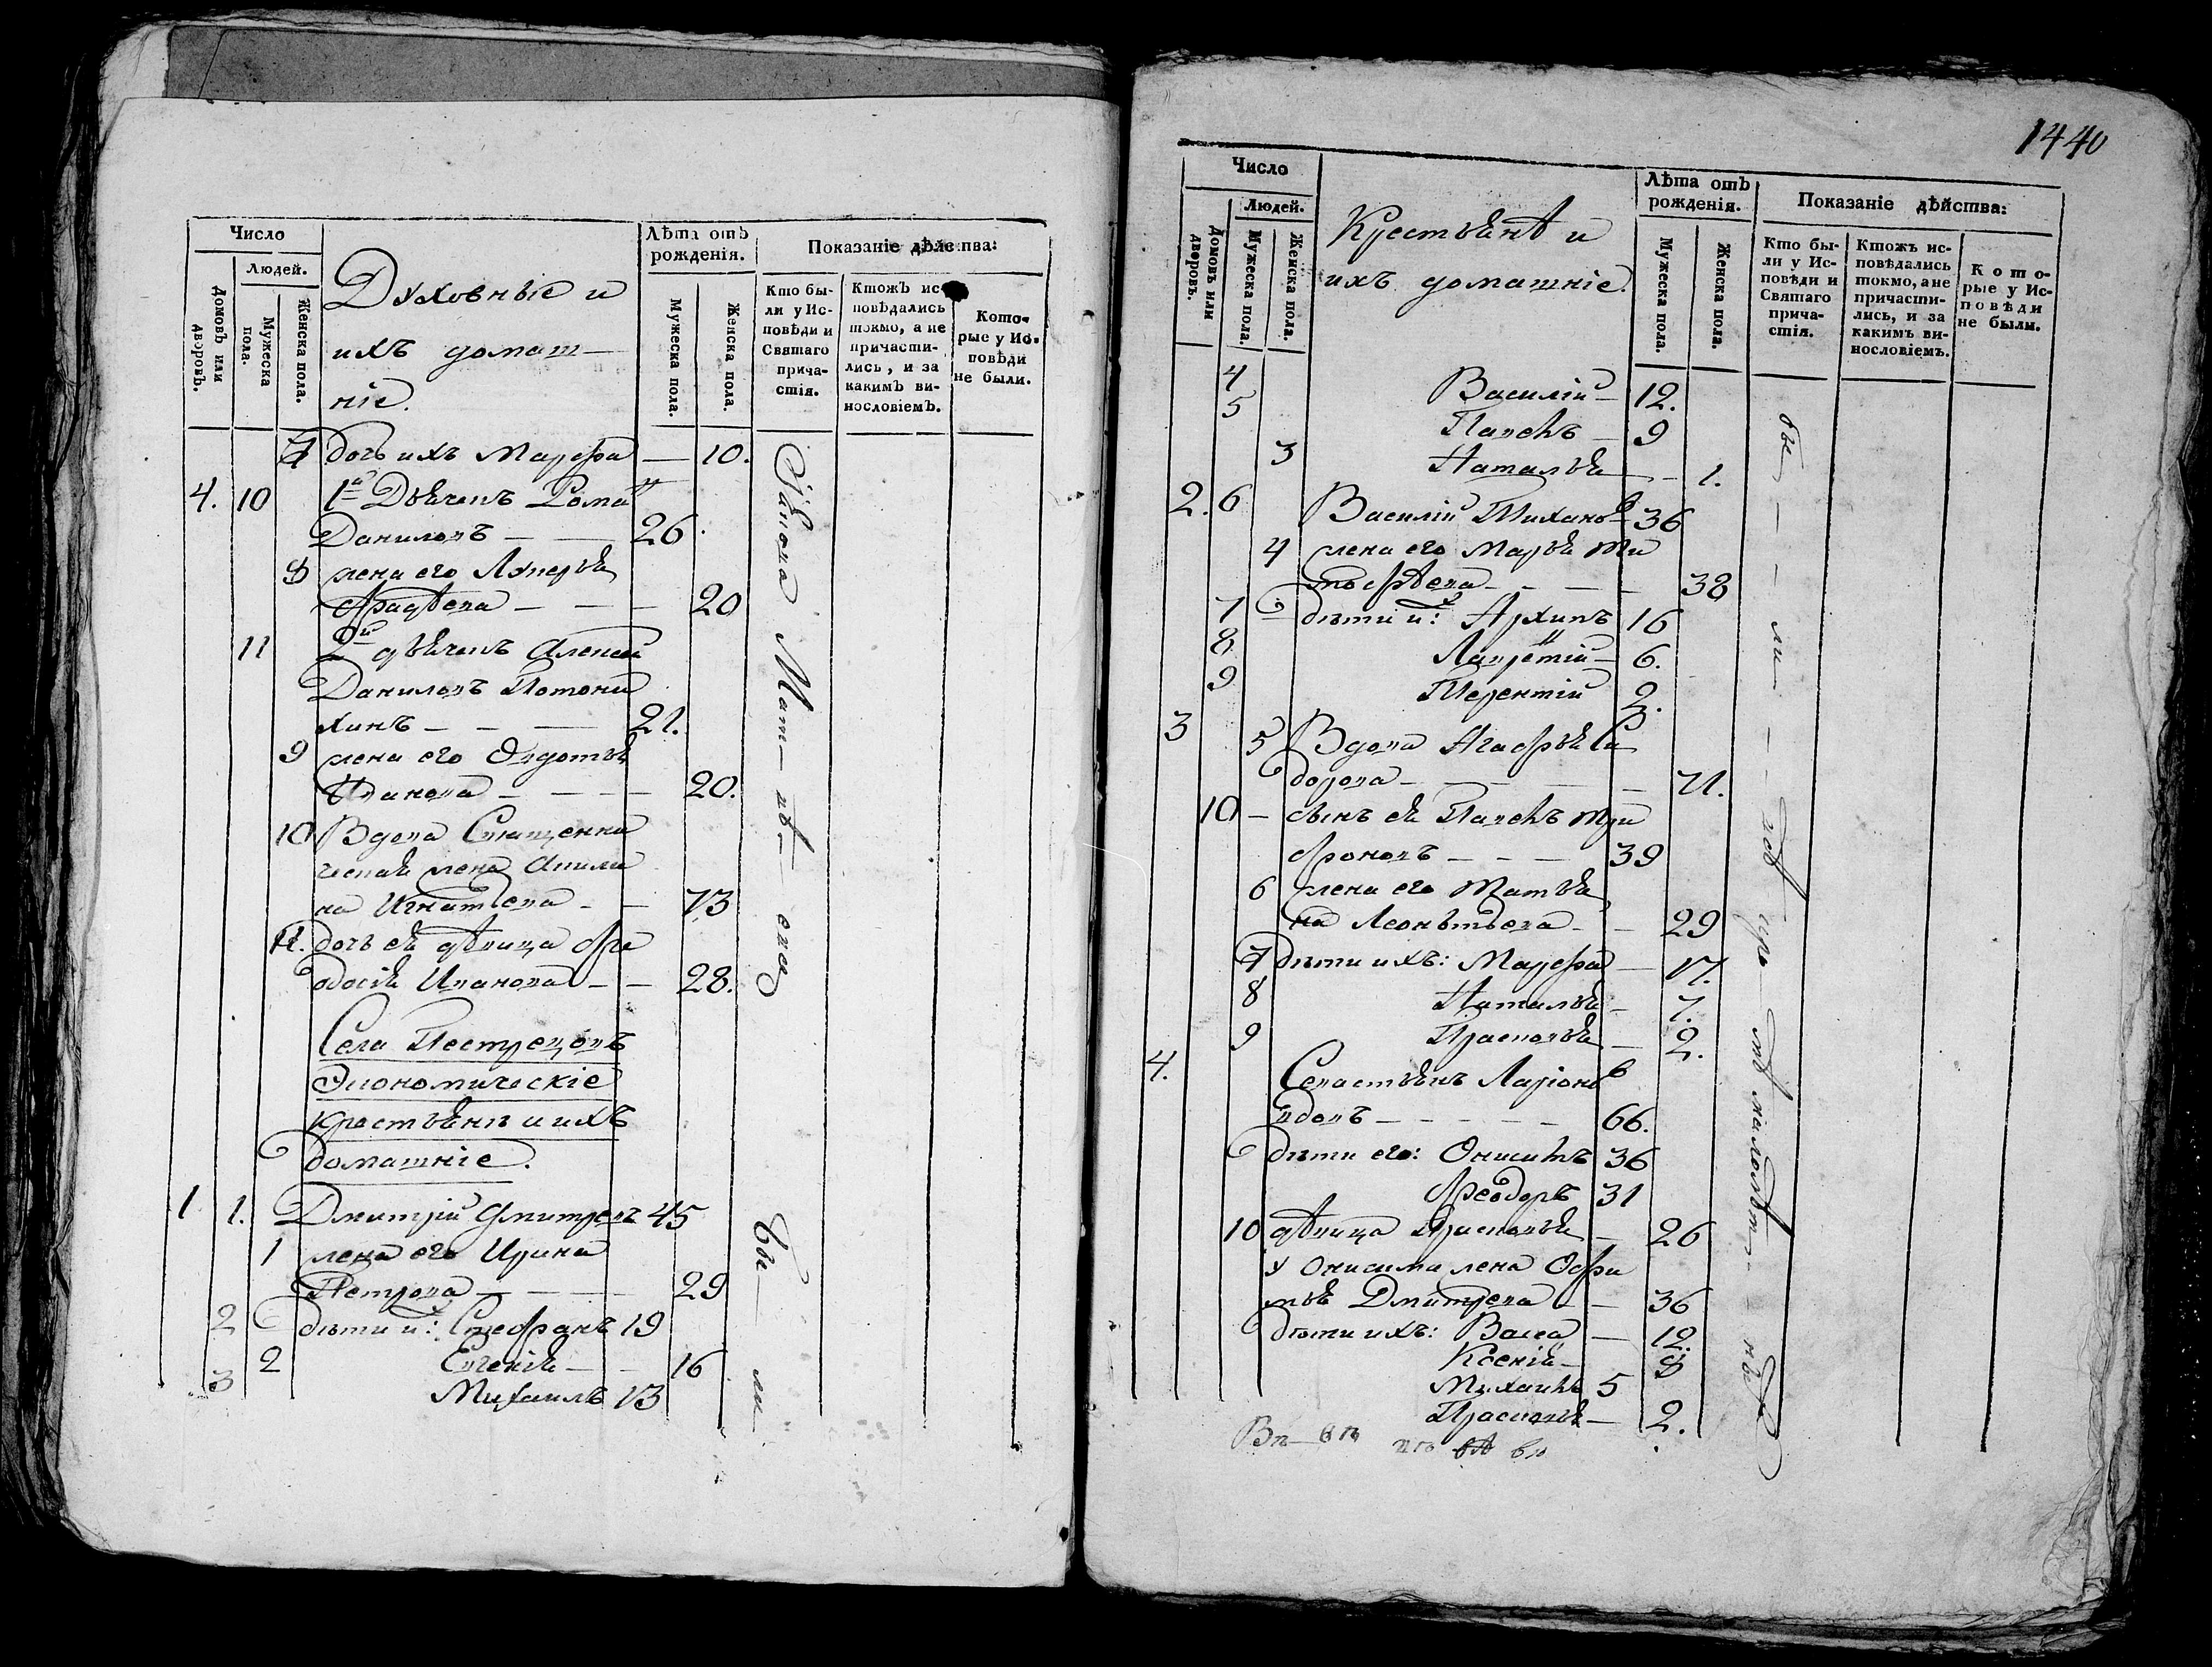 Число
Людей.
Домовъ или дворовъ.
Мужеска пола.
Женска пола.
Духовныіе и
ихъ домаш—
ніе.
Лѣта отъ рожденія.
Мужеска пола.
Женска пола.
Показаніе дѣйства:
Кто бы-
ли у Ис-
повѣди и
Святаго
прича-
стія.
Ктожъ ис-
повѣдались
токмо, а не
причасти-
лись, и за
какимъ ви-
нословіемъ.
Кото-
рые у Ис-
повѣди
не были.
7 дочь ихъ Марфа — 10.
4. 10 1й Дьячекъ Романъ
Даниловъ — — 26.
8 жена его Лукерья
Фадѣева — — — 20
11 2й дьячекъ Алексѣй
Даниловъ
хинъ — — — 21.
9 жена его Овдотья
Иванова — — — 20.
10 Вдова Священни
ческая жена Акили
на Игнатьева — — 73
11. дочь ея дѣвица Фе
одосія Иванова — — 28.
Села Пестрецовъ
Экономическіе
крестьяня и ихъ
домашніе.
1 1. Дмитрій Дмитревъ 45
1 жена его Ирина
Петрова — — — 29
2 дѣти их: Стефанъ 19
2 Евгенія — — 16
3 Михаилъ 13
Бы — ли
1440
Число
Людей.
Домовъ или дворовъ.
Мужеска пола.
Женска пола.
Крестьянѣ и
ихъ домашніе.
Лѣта отъ
рожденія.
Мужеска пола.
Женска пола.
Показаніе дѣйства:
Кто бы-
ли у Ис-
повѣди и
Святаго
прича-
стія.
Ктожъ ис-
повѣдались
токмо, а не
причасти-
лись, и за
какимъ ви-
нословіемъ.
Кото-
рые у Ис-
повѣди
не были.
4 Василій — 12.
5 Павелъ — 9
3 Наталья — — 1.
2. 6 Василій Тихановъ 36
4 жена его Марья Ти
мофѣева — — — — 38
7 дѣти их: Архипъ 16
8 Лаврентій — 6.
9 Терентій 2.
3 5 Вдова Агафья Си
дорова — — — 71.
10 — сынъ ея Павелъ Три
фоновъ — — — 39
6 жена его Татья
на Леонтьева — — 29
7 дѣти ихъ: Марфа — 17.
8 Наталья — 7.
9 Прасковья — 2.
4. Севастьянъ Ларіоновъ
вдовъ — — — — — 66.
дѣти его: Онисимъ 36
Феодоръ 31
10 дѣвица Прасковья — 26
у Онисима жена Офи
мья Дмитрева — — 36
дѣти ихъ: Васса — 12.
Ксенія — 8
Михаилъ 5
Прасковья — 2.
бы — — ли — —